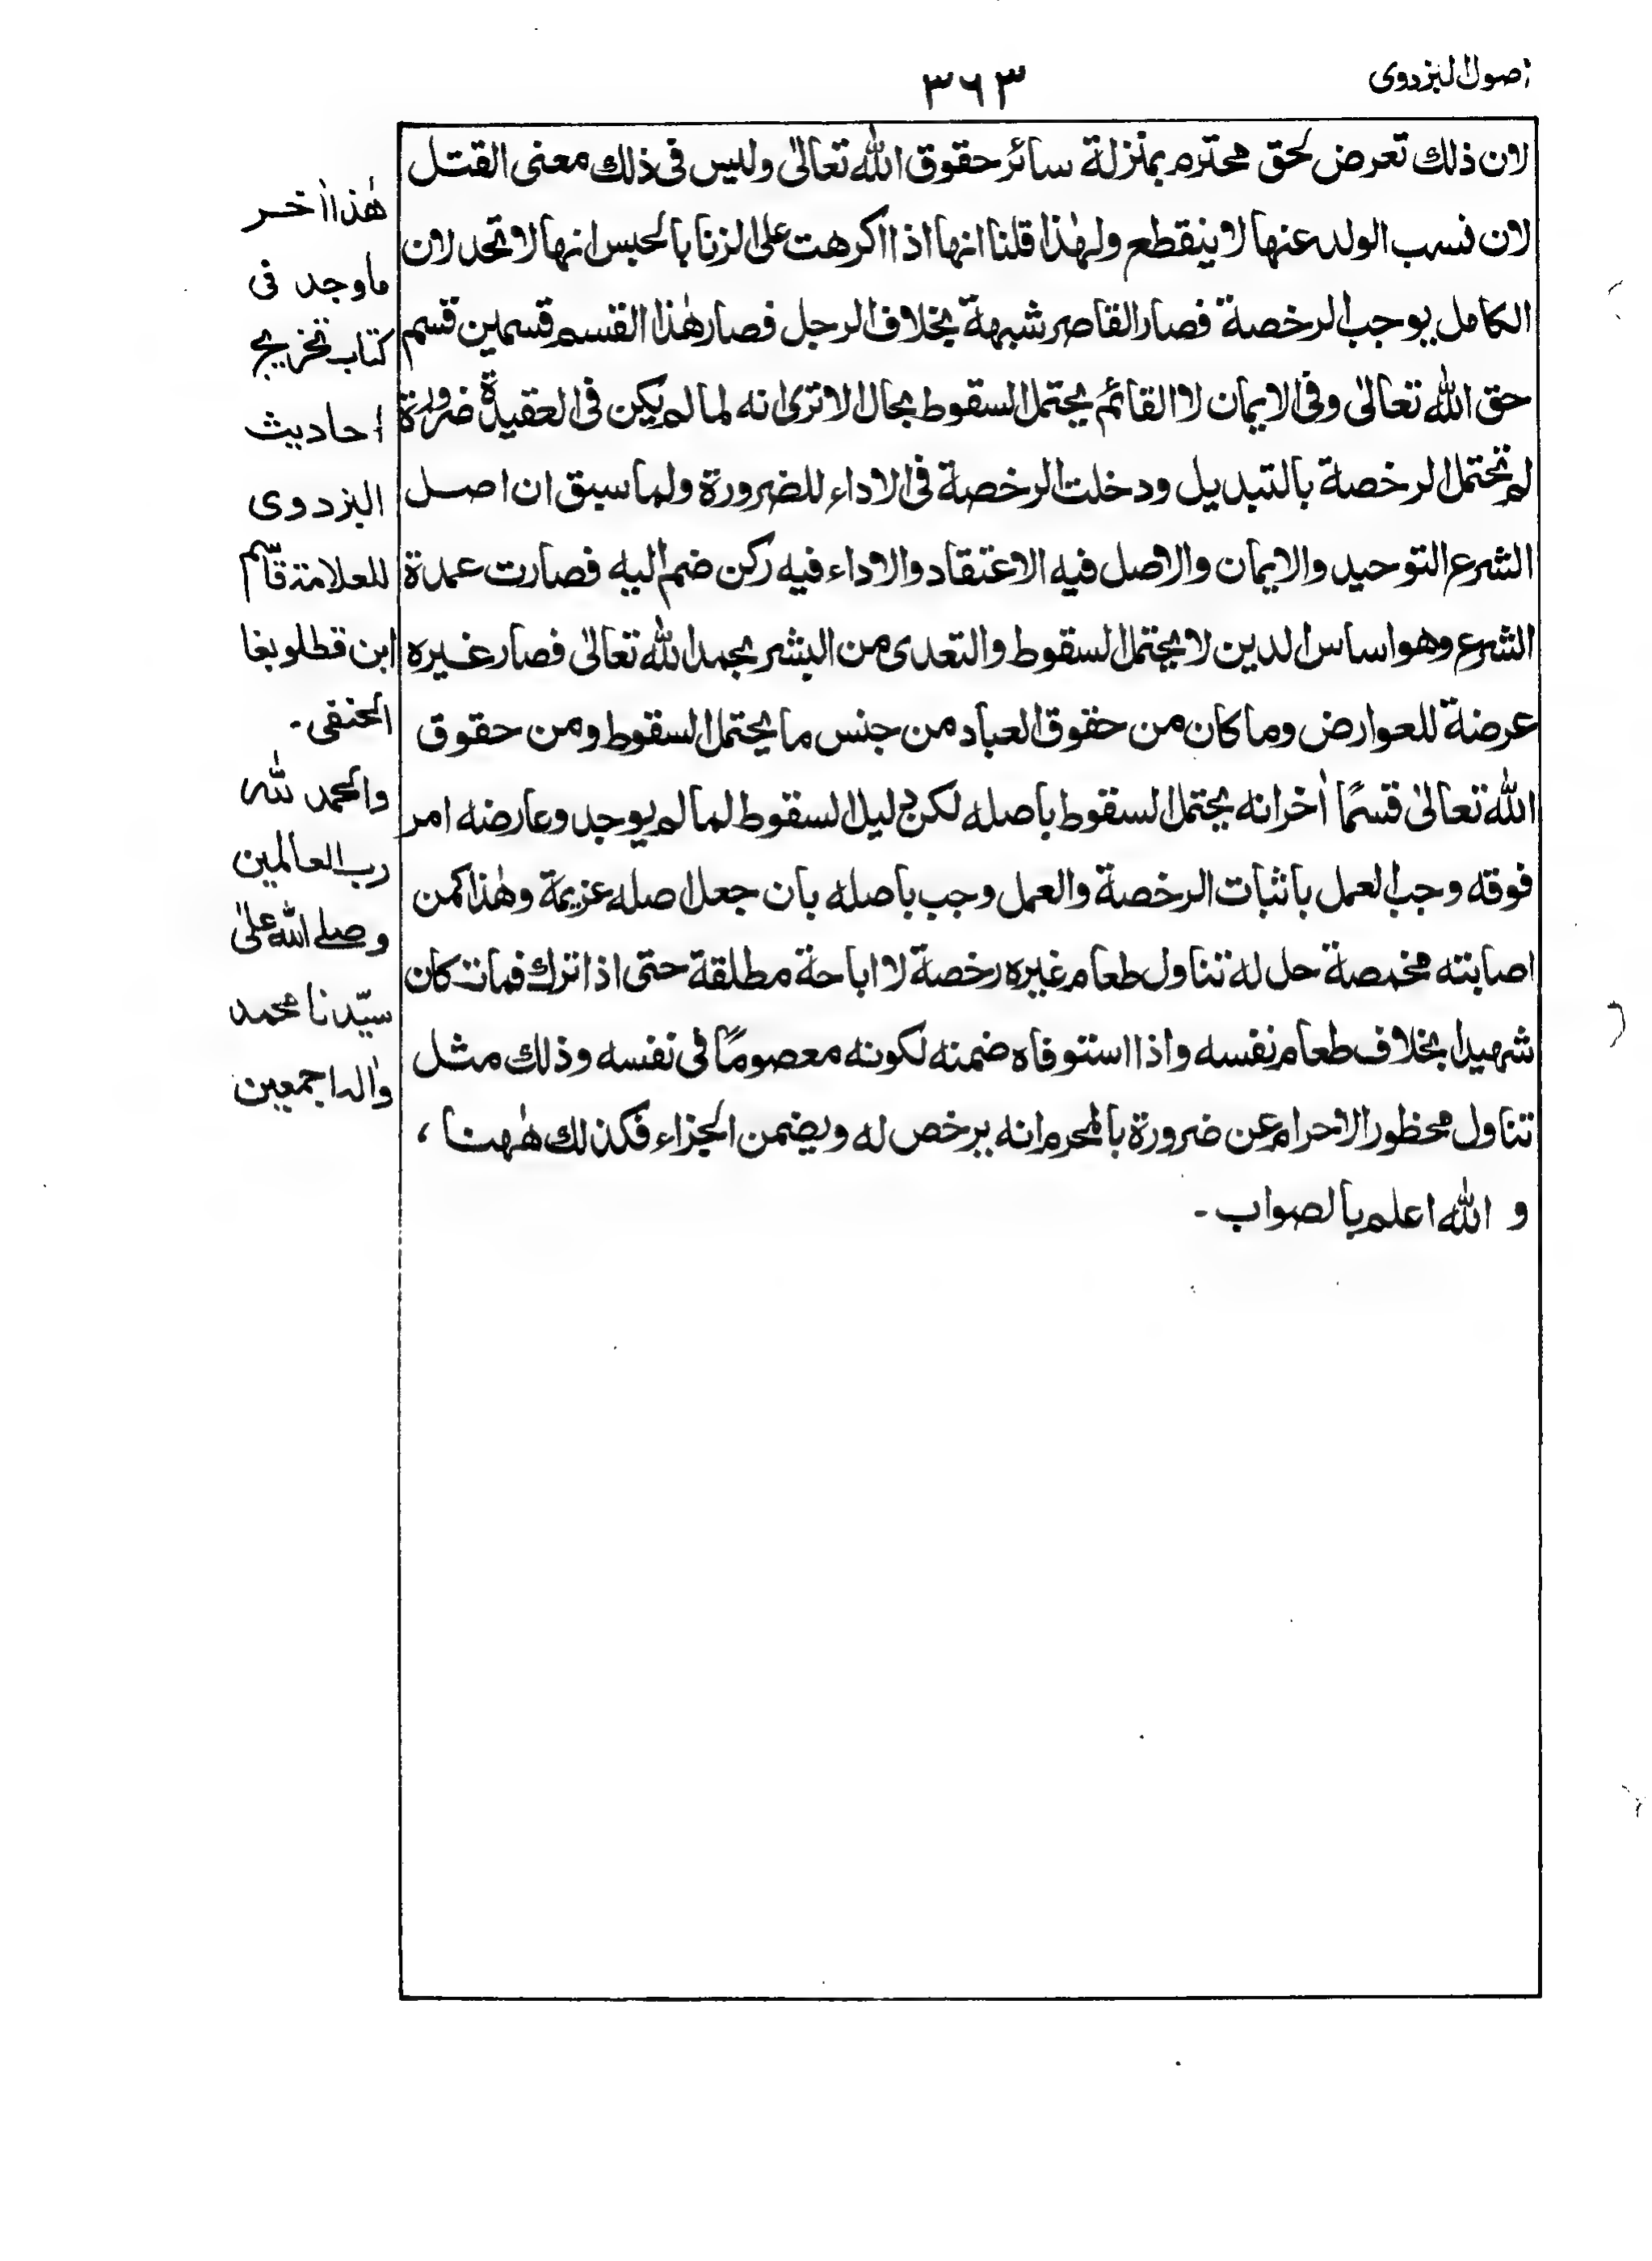 اصول البزدوى
٣٦٣
لان ذلك تعرض لحق محترم بمنزلة سائر حقوق الله تعالىٰ وليس فى ذلك معنى القتل
لان نسب الولد عنها لا ينقطع ولهٰذا قلنا انها اذا اكرهت على الزنا بالحبس انها لا تحد لان
الكامل يوجب الرخصة فصار القاصر شبهة بخلاف الرجل فصار هٰذا القسم قسمين قسم
حق الله تعالىٰ وفى الايمان لا القائم يحتمل السقوط بحال الا ترى انه لما لم يكن فى العقيدة ضرورة
لم تحتمل الرخصة بالتبديل ودخلت الرخصة فى الاداء للضرورة ولما سبق ان اصل
الشرع التوحيد والايمان والاصل فيه الاعتقاد والاداء فيه ركن ضم اليه فصارت عمدة
الشرع وهو اساس الدين لا يحتمل السقوط والتعدى من البشر بحمد الله تعالىٰ فصار غيره
عرضة للعوارض وما كان من حقوق العباد من جنس ما يحتمل السقوط ومن حقوق
الله تعالىٰ قسمًا اٰخر انه يحتمل السقوط باصله لكن دليل السقوط لما لم يوجد وعارضه امر
فوقه وجب العمل باثبات الرخصة والعمل وجب باصله بان جعل اصله عزيمة وهٰذا كمن
اصابته مخمصة حل له تناول طعام غيره رخصة لا اباحة مطلقة حتى اذا ترك فمات كان
شهيدا بخلاف طعام نفسه واذا استوفاه ضمنه لكونه معصومًا فى نفسه وذلك مثل
تناول محظور الاحرام عن ضرورة بالمحرم انه يرخص له ويضمن الجزاء فكذلك هٰهنا ،
و الله اعلم بالصواب -
هٰذا اٰخر
ما وجد فى
كتاب تخريج
احاديث
البزدوى
للعلامة قاسم
ابن قطلوبغا
الحنفى -
والحمد لله
رب العالمين
وصلے الله علىٰ
سيّدنا محمد
واٰله اجمعين